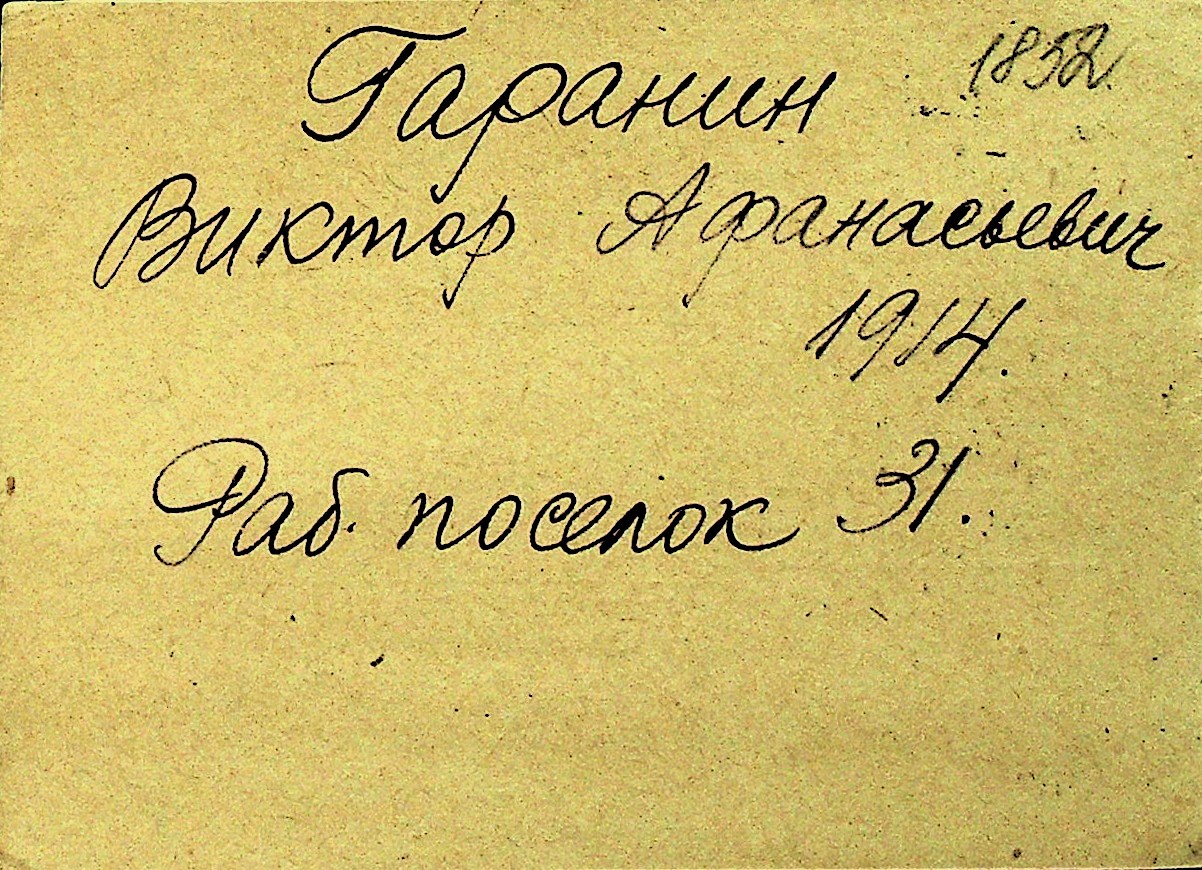 1852
Гаранин
Виктор Афанасьевич
1914.
Раб. поселок 31.